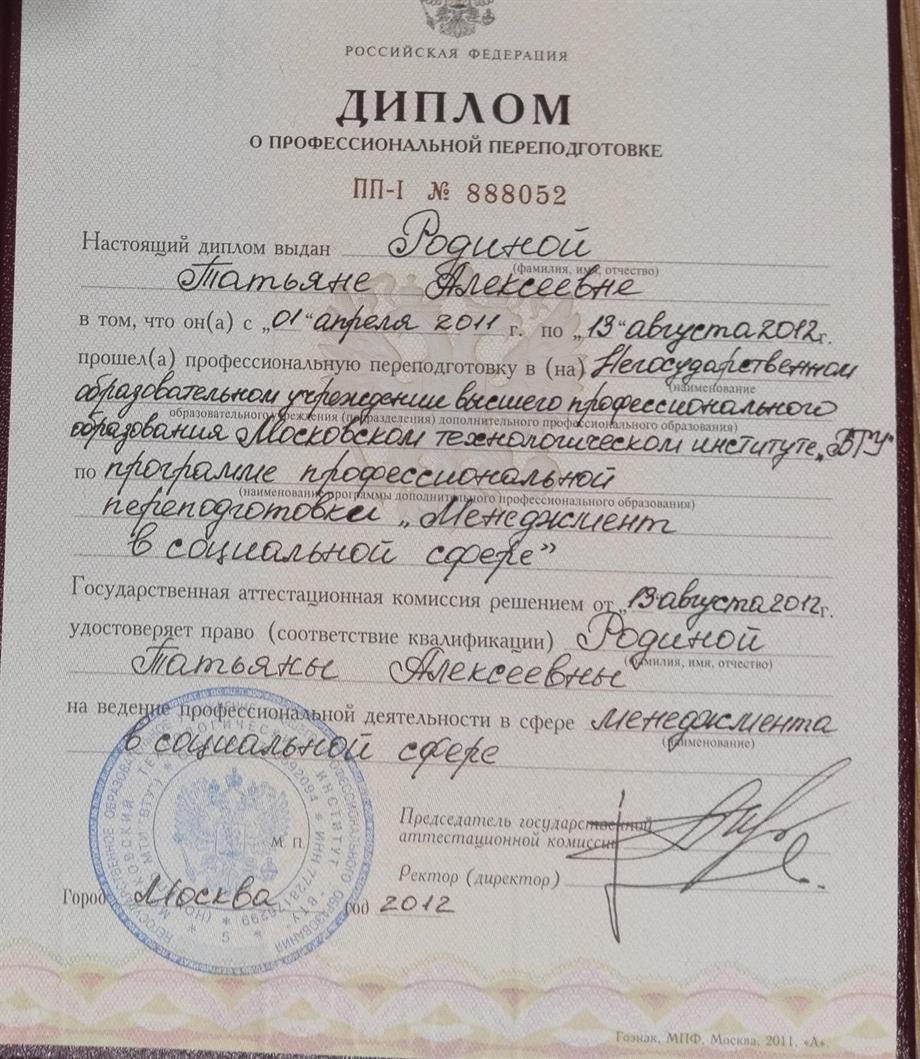 РОССИЙСКАЯ ФЕДЕРАЦИЯ
ДИПЛОМ
О ПРОФЕССИОНАЛЬНОЙ ПЕРЕПОДГОТОВКЕ
ПП-I № 888052
Настоящий диплом выдан Родиной
(фамилия, имя, отчество)
Татьяне Алексеевне
в том, что он(а) с „01“ апреля 2011 г. по „13“ августа 2012г.
прошел(а) профессиональную переподготовку в (на) Негосударственном
(наименование
образовательном учреждении высшего профессионального
образовательного учреждения (подразделения) дополнительного профессионального образования)
образования Московском технологическом институте „ВТУ“
по программе профессиональной
(наименование программы дополнительного профессионального образования)
переподготовки „Менеджмент
в социальной сфере”
Государственная аттестационная комиссия решением от „13“ августа 2012г.
удостоверяет право (соответствие квалификации) Родиной
(фамилия, имя, отчество)
Татьяны Алексеевны
на ведение профессиональной деятельности в сфере менеджмента
(наименование)
в социальной сфере
Председатель государственной
аттестационной комиссии
М. П.
Ректор (директор)
Город Москва год 2012
Гознак, МПФ, Москва, 2011, «А».